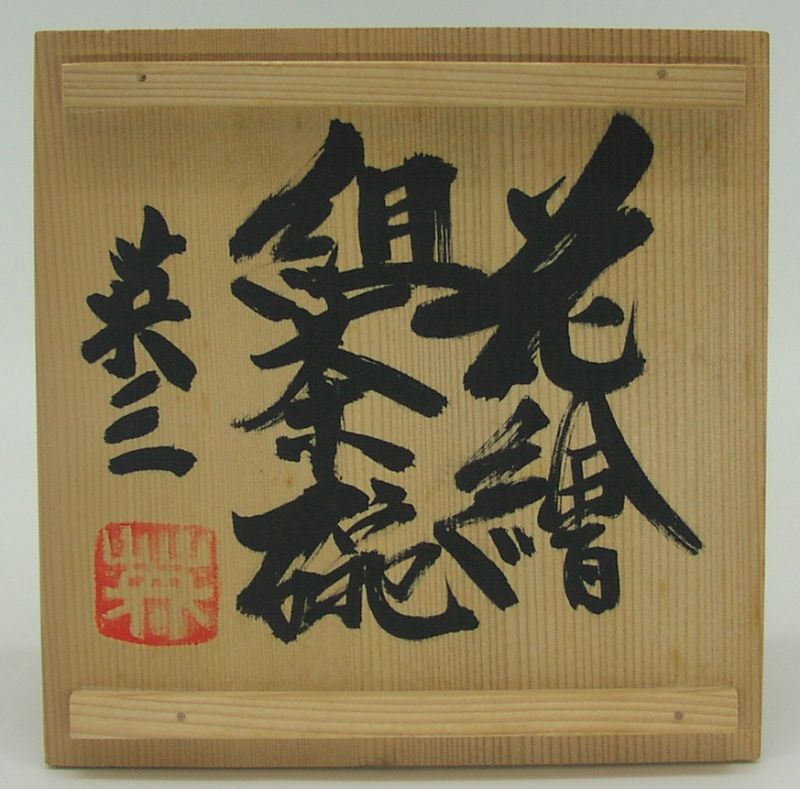 花繪
組茶碗
英三
英